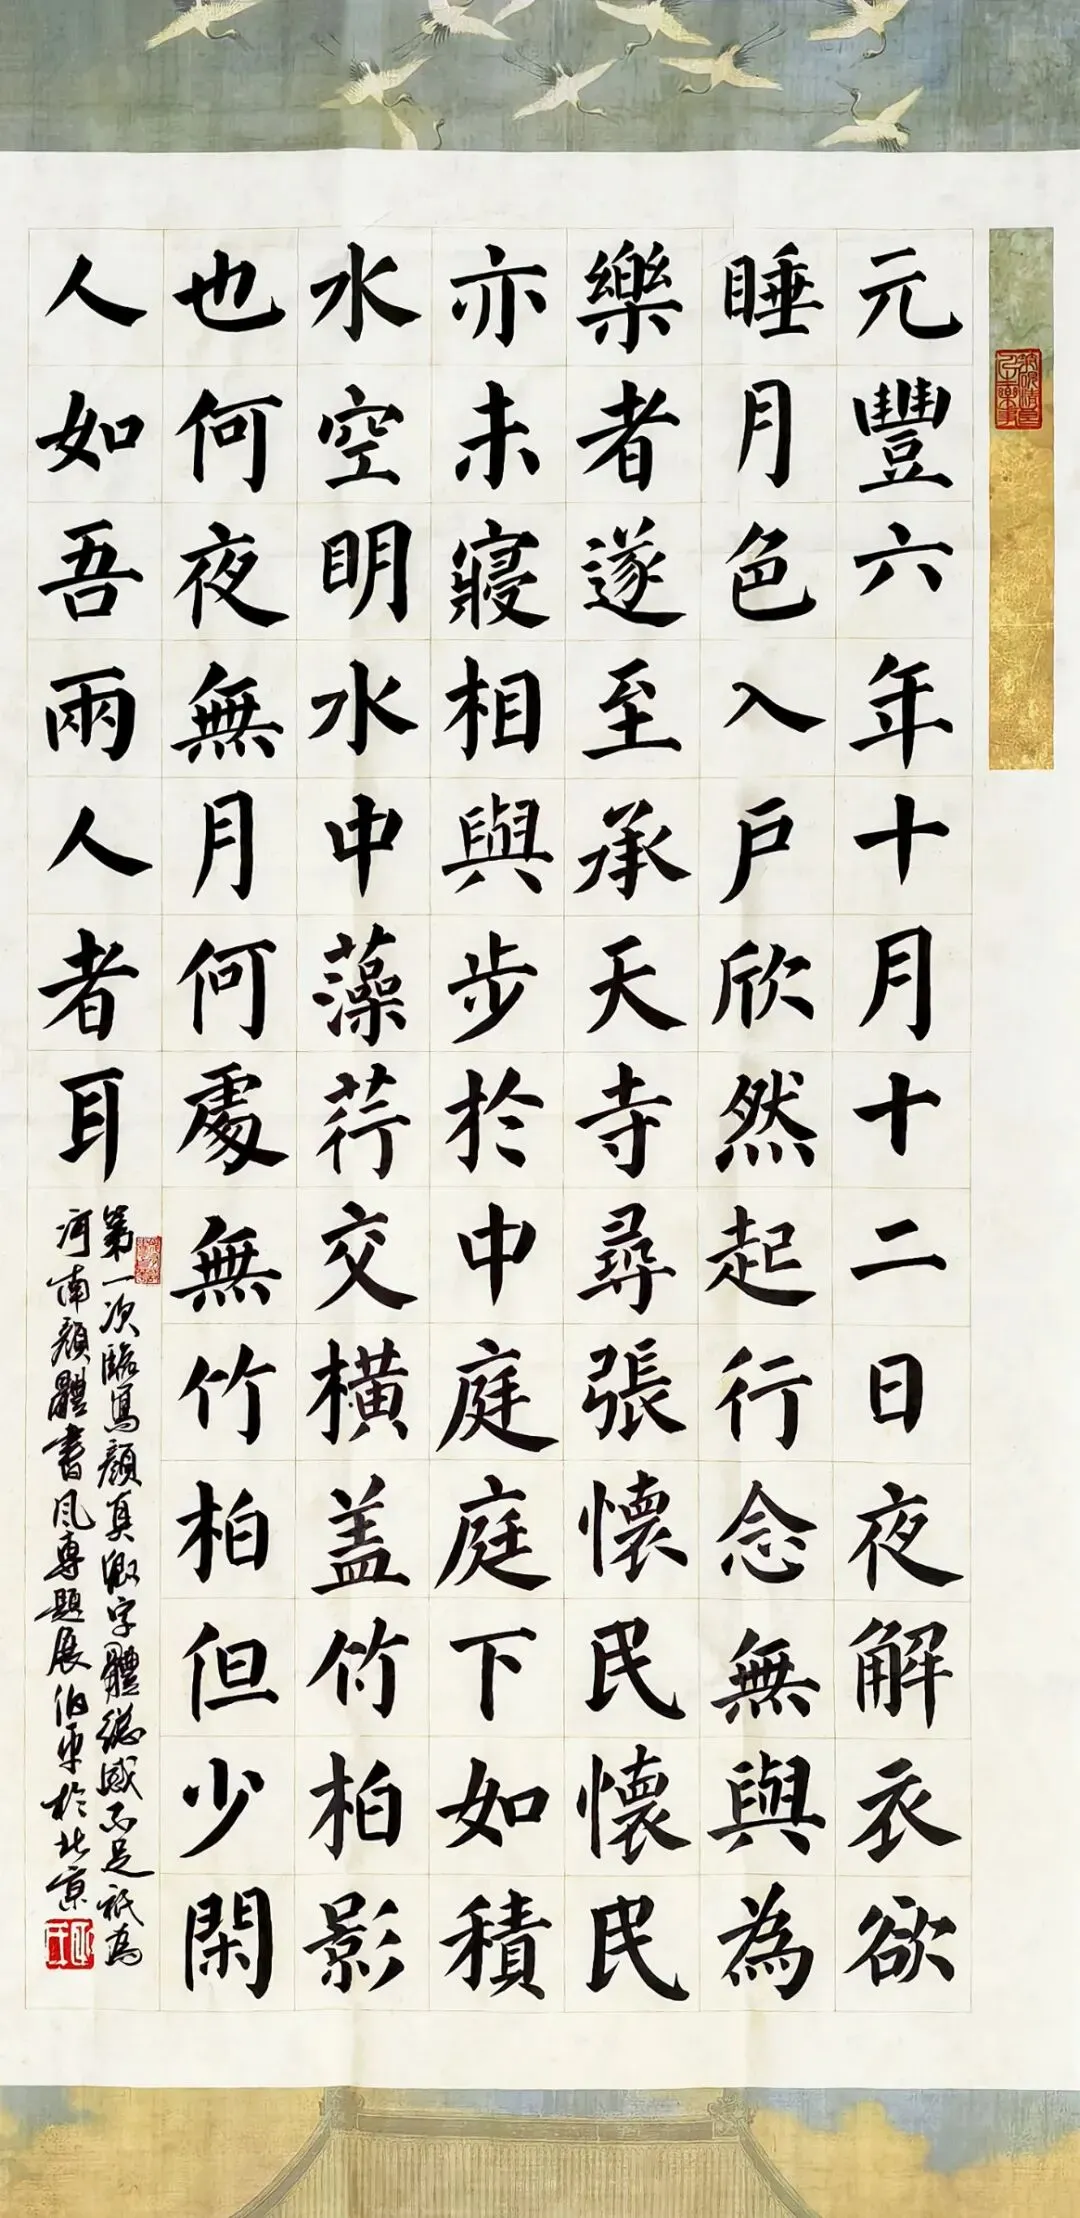 元豐六年十月十二日夜解衣欲
睡月色入戶欣然起行念無與為
樂者遂至承天寺尋張懷民懷民
亦未寢相與步於中庭庭下如積
水空明水中藻荇交橫盖竹柏影
也何夜無月何處無竹柏但少閑
人如吾兩人者耳
第一次臨寫顏真卿字體總感不足祇為
河南顏體書風專題展伯平於北京